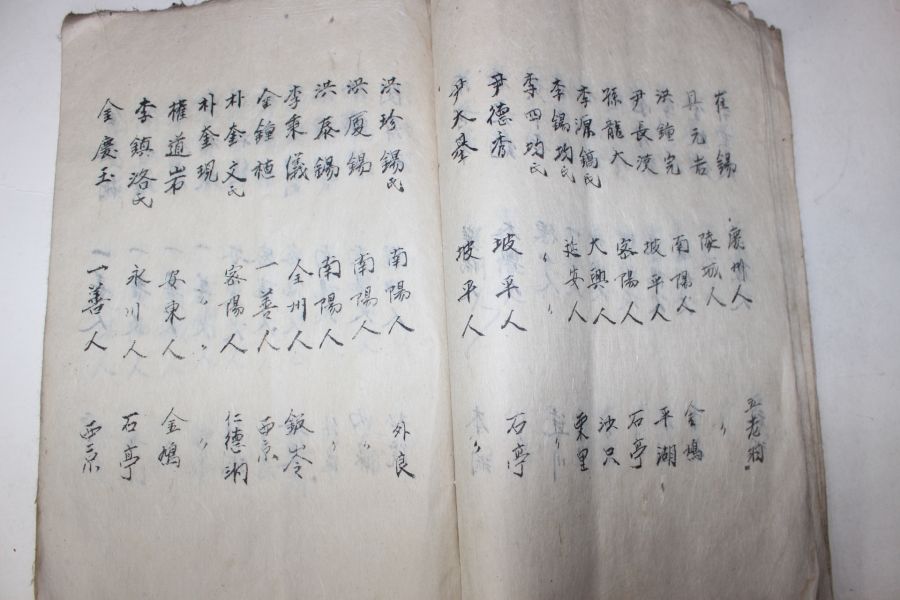 崔 錫 慶州人 五老洞
具元吉 陵城人 〃
洪鐘完 南陽人 金鳩
尹長漢 坡平人 平湖
孫龍大 密陽人 石亭
李源鎬氏 大興人 沙只
李錫均氏 延安人 東里
李四均氏 〃
尹德香 坡平人 石亭
尹大基 坡平人 〃
洪珍錫氏 南陽人 外良
洪厦錫 南陽人 〃
洪泰錫 南陽人 〃
李秉儀 全州人 飯岑
金鐘植 一善人 西京
朴奎文氏 密陽人 仁德洞
朴奎現 〃 〃
權道岩 安東人 金鳩
李鎮洛氏 永川人 石亭
金慶玉 一善人 西京